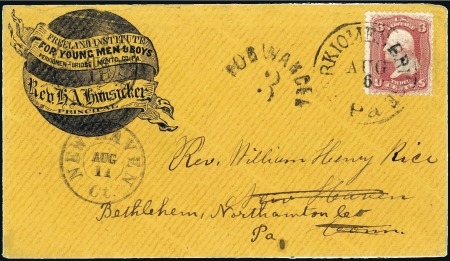 FREELAND INSTITUTE
FOR YOUNG MEN & BOYS
PERKIOMEN BRIDGE MONTG. CO. PA.
Rev. H.A. Hunsicker
PRINCIPAL
FORWARDED
3
PERKIOMEN BRIDGE
AUG
6
Pa
U.S.
3 CENTS 3
NEW HAVEN
AUG
11
Ct.
Rev. William Henry Rice
New Haven
Bethlehem, Northamton Co
Conn.
Pa